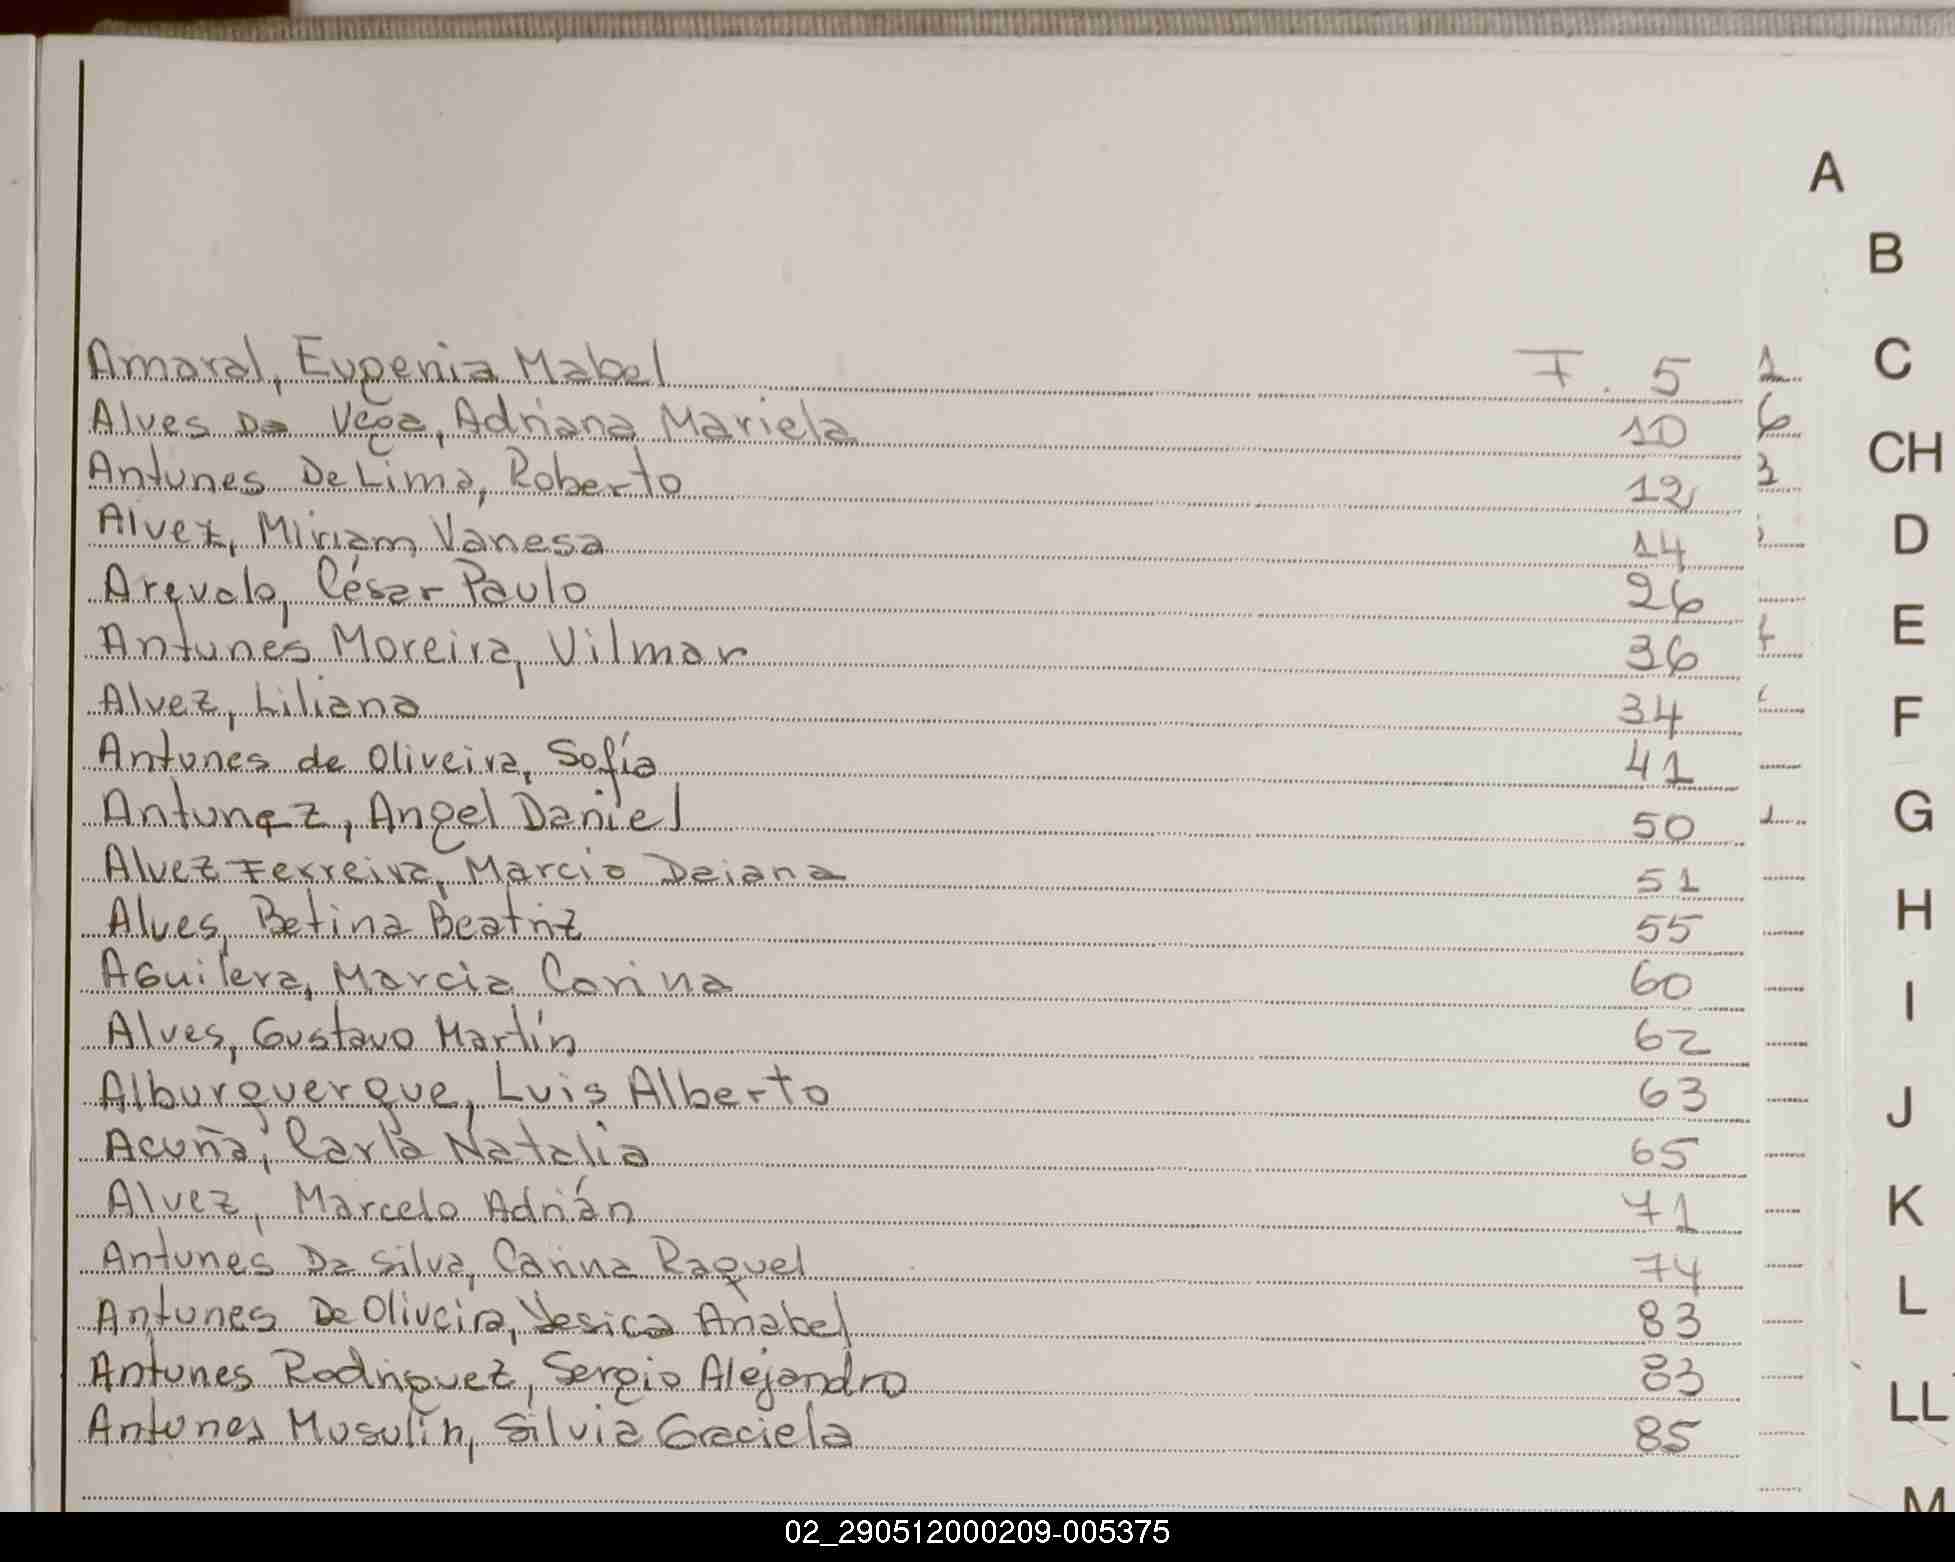 A
B
Amaral, Eugenia Mabel F. 5 1 C
Alves Da Vega, Adriana Mariela 10 6
Antunes De Lima, Roberto 12 3 CH
Alvez, Miriam Vanesa 14 D
Arevalo, César Paulo 26
Antunes Moreira, Vilmar 36 E
Alvez, Liliana 34 F
Antunes de Oliveira, Sofía 41
Antunez, Angel Daniel 50 G
Alvez Ferreira, Marcia Daiana 51
Alves, Betina Beatriz 55 H
Aguilera, Marcia Carina 60 I
Alves, Gustavo Martín 62
Alburquerque, Luis Alberto 63 J
Acuña, Carla Natalia 65
Alvez, Marcelo Adrián 71 K
Antunes Da Silva, Carina Raquel 74
Antunes De Oliveira, Yesica Anabel 83 L
Antunes Rodriguez, Sergio Alejandro 83
Antunes Musulin, Silvia Graciela 85 LL
M
02_290512000209-005375